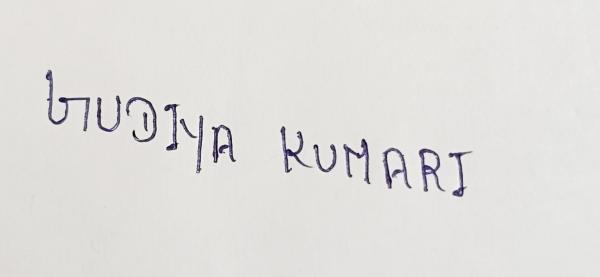 GUDIYA KUMARI